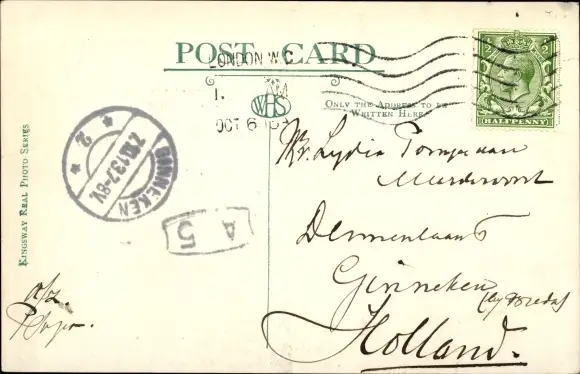 POST CARD
LONDON W.C
1. AM
OCT 6 13
WHS
ONLY THE ADDRESS TO BE
WRITTEN HERE
HALFPENNY
GINNEKEN
7.10.13.7-8V.
* 2 *
A
5
KINGSWAY REAL PHOTO SERIES
Lydia
Dennenlaan 6
Ginneken
(by Breda)
Holland.